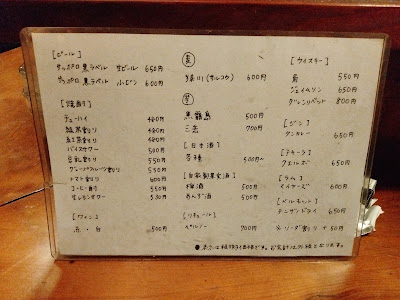 [ビール]
サッポロ 黒ラベル 生ビール 650円
サッポロ 黒ラベル 小ビン 600円
[焼酎]
チューハイ 480円
緑茶割り 480円
紅茶割り 480円
バイスサワー 500円
豆乳割り 550円
トマト割り 600円
コーヒー割り 550円
生レモンサワー 550円
[ワイン]
赤・白 500円
麦
(サルコウ) 600円
芋
黒霧島 500円
三岳 700円
[日本酒]
各種 500円~
[自家製果実酒]
梅酒 500円
あんず酒 500円
[リキュール]
ペルノー 700円
[ウイスキー]
角 550円
ジェイムソン 650円
グレンリベット 800円
[ジン]
タンカレー 650円
[テキーラ]
クエルボ 650円
[ラム]
マイヤーズ 600円
[ベルモット]
チンザノドライ 650円
※ソーダ割り +50円